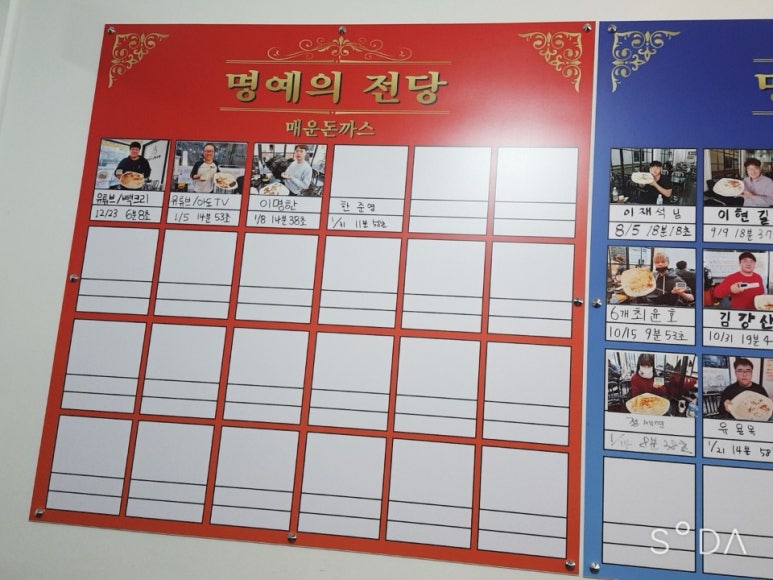 명예의 전당
매운돈까스
유튜브/백크리
12/23 6분8초
유튜브/아도TV
1/5 14분 53초
이명한
1/8 14분 38초
한준영
1/31 11분 58초
이재석 님
8/5 18분 18초
이현길
9/9 18분 37
6개최윤호
10/15 9분 53초
김강산
10/31 19분 4
1/14 8분 28초
1/21 14분 58
SODA